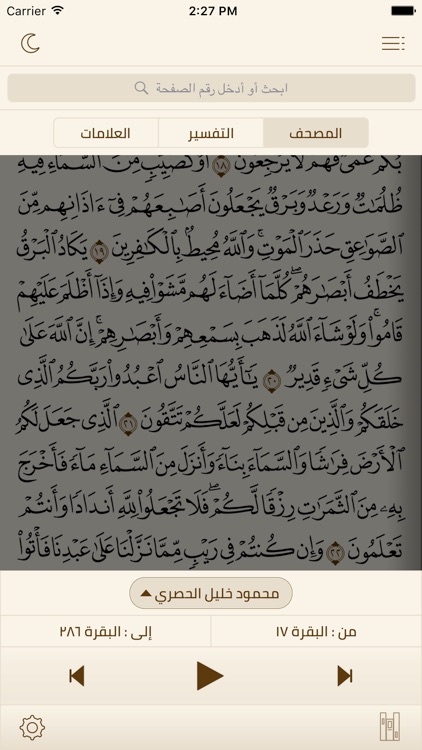 Carrier 2:27 PM
ابحث أو أدخل رقم الصفحة
المصحف التفسير العلامات
بُكْمٌ عُمْىٌ فَهُمْ لَا يَرْجِعُونَ ١٨ أَوْ كَصَيِّبٍ مِّنَ السَّمَآءِ فِيهِ
ظُلُمَٰتٌ وَرَعْدٌ وَبَرْقٌ يَجْعَلُونَ أَصَٰبِعَهُمْ فِىٓ ءَاذَانِهِم مِّنَ
الصَّوَٰعِقِ حَذَرَ الْمَوْتِ ۚ وَاللَّهُ مُحِيطٌۢ بِالْكَٰفِرِينَ ١٩ يَكَادُ الْبَرْقُ
يَخْطَفُ أَبْصَٰرَهُمْ ۖ كُلَّمَآ أَضَآءَ لَهُم مَّشَوْا۟ فِيهِ وَإِذَآ أَظْلَمَ عَلَيْهِمْ
قَامُوا۟ ۚ وَلَوْ شَآءَ اللَّهُ لَذَهَبَ بِسَمْعِهِمْ وَأَبْصَٰرِهِمْ ۚ إِنَّ اللَّهَ عَلَىٰ
كُلِّ شَىْءٍ قَدِيرٌ ٢٠ يَٰٓأَيُّهَا النَّاسُ اعْبُدُوا۟ رَبَّكُمُ الَّذِى
خَلَقَكُمْ وَالَّذِينَ مِن قَبْلِكُمْ لَعَلَّكُمْ تَتَّقُونَ ٢١ الَّذِى جَعَلَ لَكُمُ
الْأَرْضَ فِرَٰشًا وَالسَّمَآءَ بِنَآءً وَأَنزَلَ مِنَ السَّمَآءِ مَآءً فَأَخْرَجَ
بِهِۦ مِنَ الثَّمَرَٰتِ رِزْقًا لَّكُمْ ۖ فَلَا تَجْعَلُوا۟ لِلَّهِ أَندَادًا وَأَنتُمْ
تَعْلَمُونَ ٢٢ وَإِن كُنتُمْ فِى رَيْبٍ مِّمَّا نَزَّلْنَا عَلَىٰ عَبْدِنَا فَأْتُوا۟
محمود خليل الحصري
من : البقرة ١٧ إلى : البقرة ٢٨٦